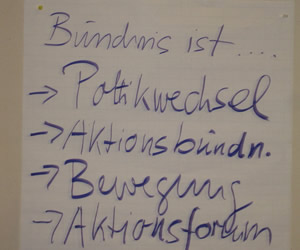 Bündnis ist....
→ Politikwechsel
→ Aktionsbündn.
→ Bewegung
→ Aktionsforum